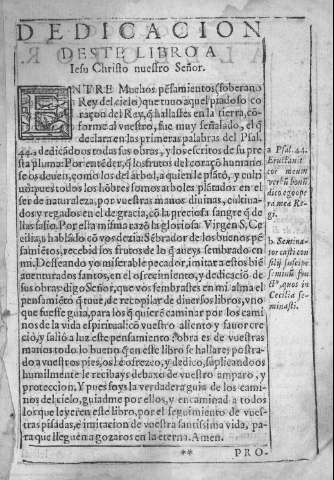 DEDICACION
DESTE LIBRO A
Iesu Christo nuestro Señor.
ENTRE Muchos pẽsamientos (soberano
Rey del cielo) que tuuo aquel piadoso co
raçon del Rey, q̃ hallastes en la tierra, cõ
forme al vuestro, fue muy señalado, el q̃
declara en las primeras palabras del Psal.
44. a dedicãdo os todas sus obras, y los escritos de su pre
sta pluma: Por entẽder, q̃ los frutos del coraçõ humano
se os deuen, como los del árbol, a quien le plãtó, y culti
uò: pues todos los hõbres somos arboles plãtados en el
ser de naturaleza, por vuestras manos diuinas, cultiua-
dos y regados en el de gracia, cõ la preciosa sangre q̃ de
llas salio. Por esta misma razõ la gloriosa Virgen S. Ce
cilia, b hablãdo cõ vos dezia: Sẽbrador de los buenos pẽ
samiẽtos, recebid los frutos de lo q̃ aueys sembrado en
mi. Desseando yo miserable pecador, imitar a estos biẽ
auenturados santos, en el ofrecimiento, y dedicació de
sus obras: digo Señor, que vos sembrastes en mi alma el
pensamiẽto q̃ tuue, de recopilar de diuersos libros, vno
que fuesse guia, para los q̃ quierẽ caminar por los cami
nos de la vida espiritual: cõ vuestro aliento y fauor cre
ció, y salió a luz este pensamiento: obra es de vuestras
manos todo lo bueno q̃ en este libro se hallare: postra
do a vuestros pies, os le ofrezco, y dedico, suplicandoos
humilmente le recibays debaxo de vuestro amparo, y
proteccion. Y pues soys la verdadera guia de los cami-
nos del cielo, guiadme por ellos, y encaminad a todos
los que leyeren este libro, por el seguimiento de vues-
tras pisadas, e imitacion de vuestra santissima vida, pa-
ra que lleguen a gozaros en la eterna. Amen.
** PRO-
a Psal. 44.
Eructauit
cor meum
verbũ bonũ
dico, ego ope
ra mea Re-
gi.
b Semina-
tor casti con
silij suscipe
seminũ fru
ctꝰ, quos in
Cecilia se-
minasti.